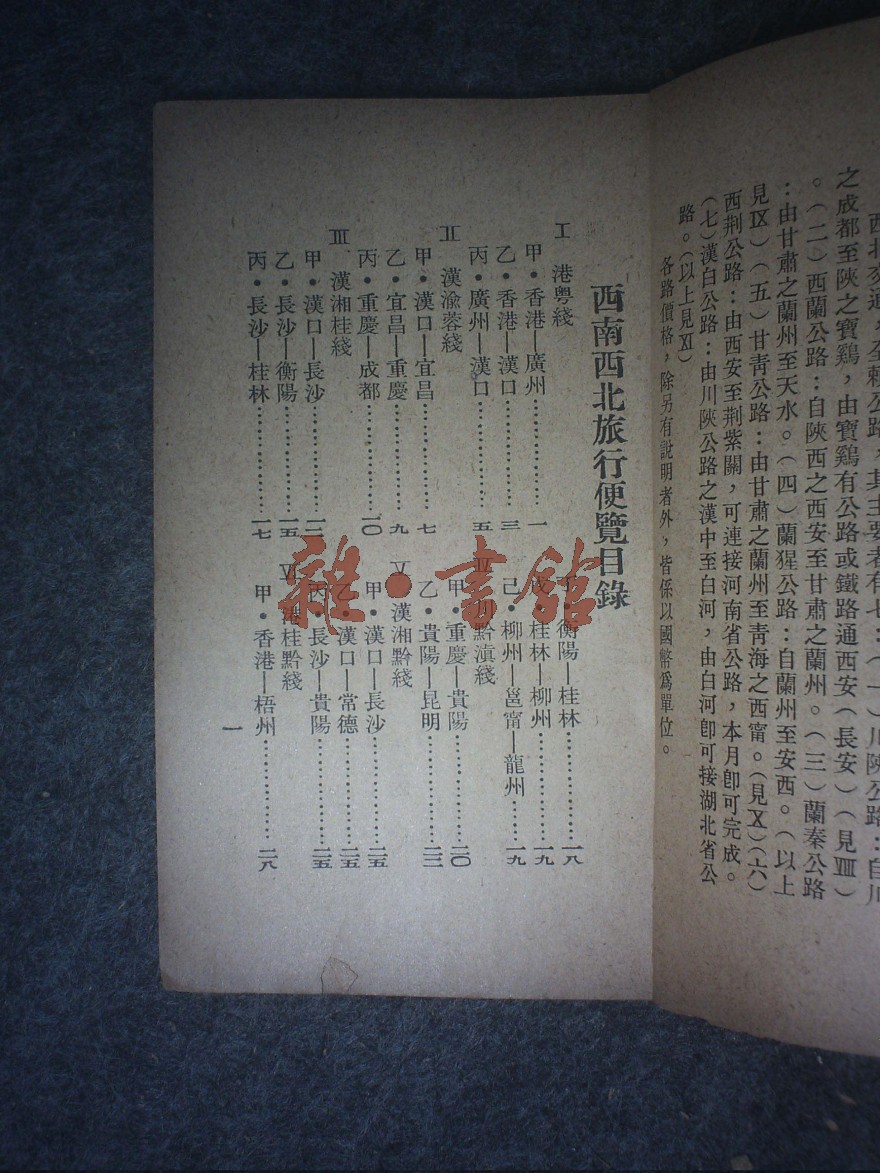 之成都至陝之寶鷄，由寶鷄有公路或鐵路通西安（長安）（見Ⅷ）
。（二）西蘭公路：自陝西之西安至甘肅之蘭州。（三）蘭秦公路
：由甘肅之蘭州至天水。（四）蘭猩公路：自蘭州至安西。（以上
見Ⅸ）（五）甘青公路：由甘肅之蘭州至青海之西甯。（見Ⅹ）（六）
西荆公路：由西安至荆紫關，可連接河南省公路，本月卽可完成。
（七）漢白公路：由川陝公路之漢中至白河，由白河卽可接湖北省公
路。（以上見Ⅺ）
各路價格，除另有說明者外，皆係以國幣爲單位。
西南西北旅行便覽目錄
Ⅰ 港粤綫
甲•香港—廣州…………一
乙•香港—漢口…………三
丙•廣州—漢口…………五
Ⅱ 漢渝蓉綫
甲•漢口—宜昌…………七
乙•宜昌—重慶…………九
丙•重慶—成都…………一〇
Ⅲ 漢湘桂綫
甲•漢口—長沙…………一二
乙•長沙—衡陽…………一五
丙•長沙—桂林…………一七
衡陽—桂林…………一八
戊•桂林—柳州…………一九
己•柳州—邕甯—龍州…………一九
Ⅳ 川黔滇綫
甲•重慶—貴陽…………二〇
乙•貴陽—昆明…………二三
Ⅴ 漢湘黔綫
甲•漢口—長沙…………二五
乙•漢口—常德…………二五
丙•長沙—貴陽…………二五
Ⅵ 港桂黔綫
甲•香港—梧州…………二八
一
雜•書館